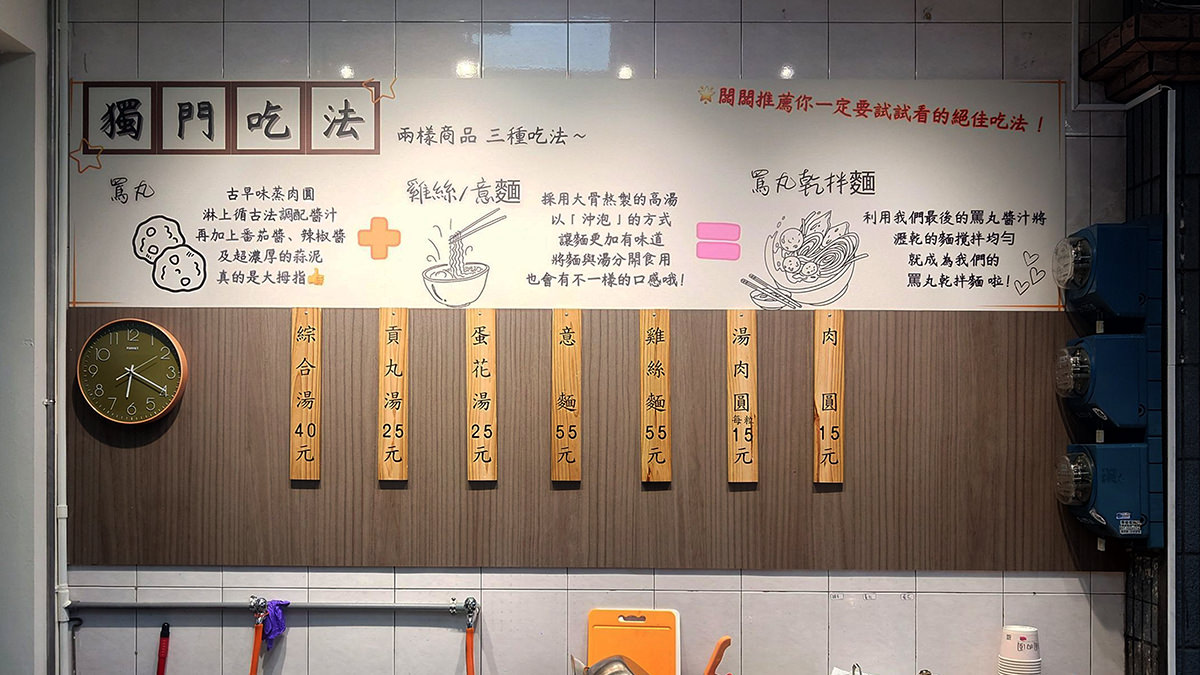 獨門吃法
兩樣商品 三種吃法～
闆闆推薦你一定要試試看的絕佳吃法！
罵丸
古早味蒸肉圓
淋上循古法調配醬汁
再加上番茄醬、辣椒醬
及超濃厚的蒜泥
真的是大拇指👍
+
雞絲/意麵
採用大骨熬製的高湯
以「沖泡」的方式
讓麵更加有味道
將麵與湯分開食用
也會有不一樣的口感哦!
=
罵丸乾拌麵
利用我們最後的罵丸醬汁將
瀝乾的麵攪拌均勻
就成為我們的
罵丸乾拌麵 啦!
綜合湯40元
貢丸湯25元
蛋花湯25元
意麵55元
雞絲麵55元
湯肉圓每粒15元
肉圓15元
12
1
2
3
4
5
6
7
8
9
10
11